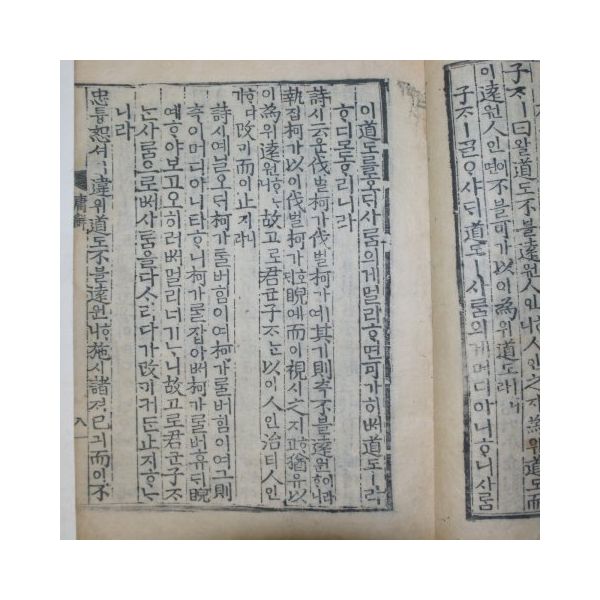 子ᄌᆞㅣ曰왈道도不블遠원人인ᄒᆞ니人인之지爲위道도而
이遠원人인이면不블可가以이爲위道도ㅣ니라
子ᄌᆞㅣᄀᆞᆯᄋᆞ샤ᄃᆡ道도ㅣ사ᄅᆞᆷ의게머디아니ᄒᆞ니사ᄅᆞᆷ
이道도를호ᄃᆡ사ᄅᆞᆷ의게멀리ᄒᆞ면可가히ᄡᅥ道도ㅣ라
ᄒᆞ디몯ᄒᆞ리니라
詩시云운伐벌柯가伐벌柯가여其기則측不블遠원이라ᄒᆞ니
執집柯가以이伐벌柯가호ᄃᆡ睨예而이視시之지ᄒᆞ고猶유以
이爲위遠원ᄒᆞᄂᆞ니故고로君군子ᄌᆞᄂᆞᆫ以이人인治티人인
ᄒᆞ다가改ᄀᆡ而이止지니라
詩시예닐오ᄃᆡ柯가ᄅᆞᆯ버힘이여柯가ᄅᆞᆯ버힘이여그則
측이머디아니타ᄒᆞ니柯가ᄅᆞᆯ잡아ᄡᅥ柯가ᄅᆞᆯ버휴ᄃᆡ睨
예ᄒᆞ야보고오히려ᄡᅥ멀리너기ᄂᆞ니故고로君군子ᄌᆞ
ᄂᆞᆫ사ᄅᆞᆷ으로ᄡᅥ사ᄅᆞᆷ을다ᄉᆞ리다가改ᄀᆡ커든止지ᄒᆞᄂᆞ
니라
忠튱恕셔ㅣ違위道도不블遠원ᄒᆞ니施시諸져己긔而이不
庸
八